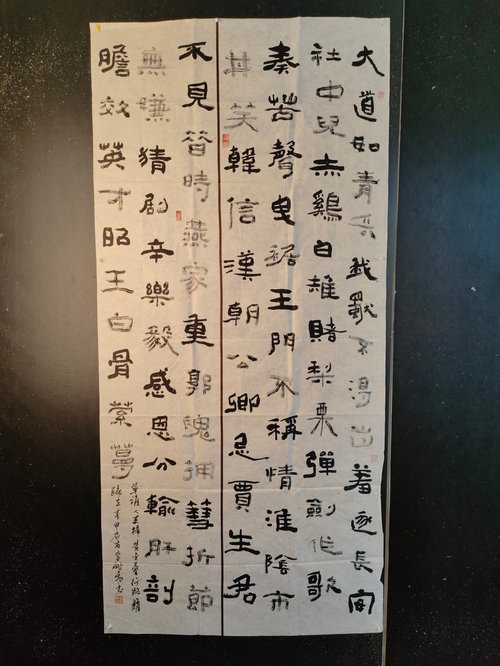 大道如青天我獨不得出羞逐長安
社中兒赤雞白雉賭梨栗彈劍作歌
奏苦聲曳裾王門不稱情淮陰市
井笑韓信漢朝公卿忌賈生君
不見昔時燕家重郭隗擁彗折節
無嫌猜劇辛樂毅感恩分輸肝剖
膽效英才昭王白骨縈蔓
草誰人更掃黃金臺行路難
歸去來甲辰書